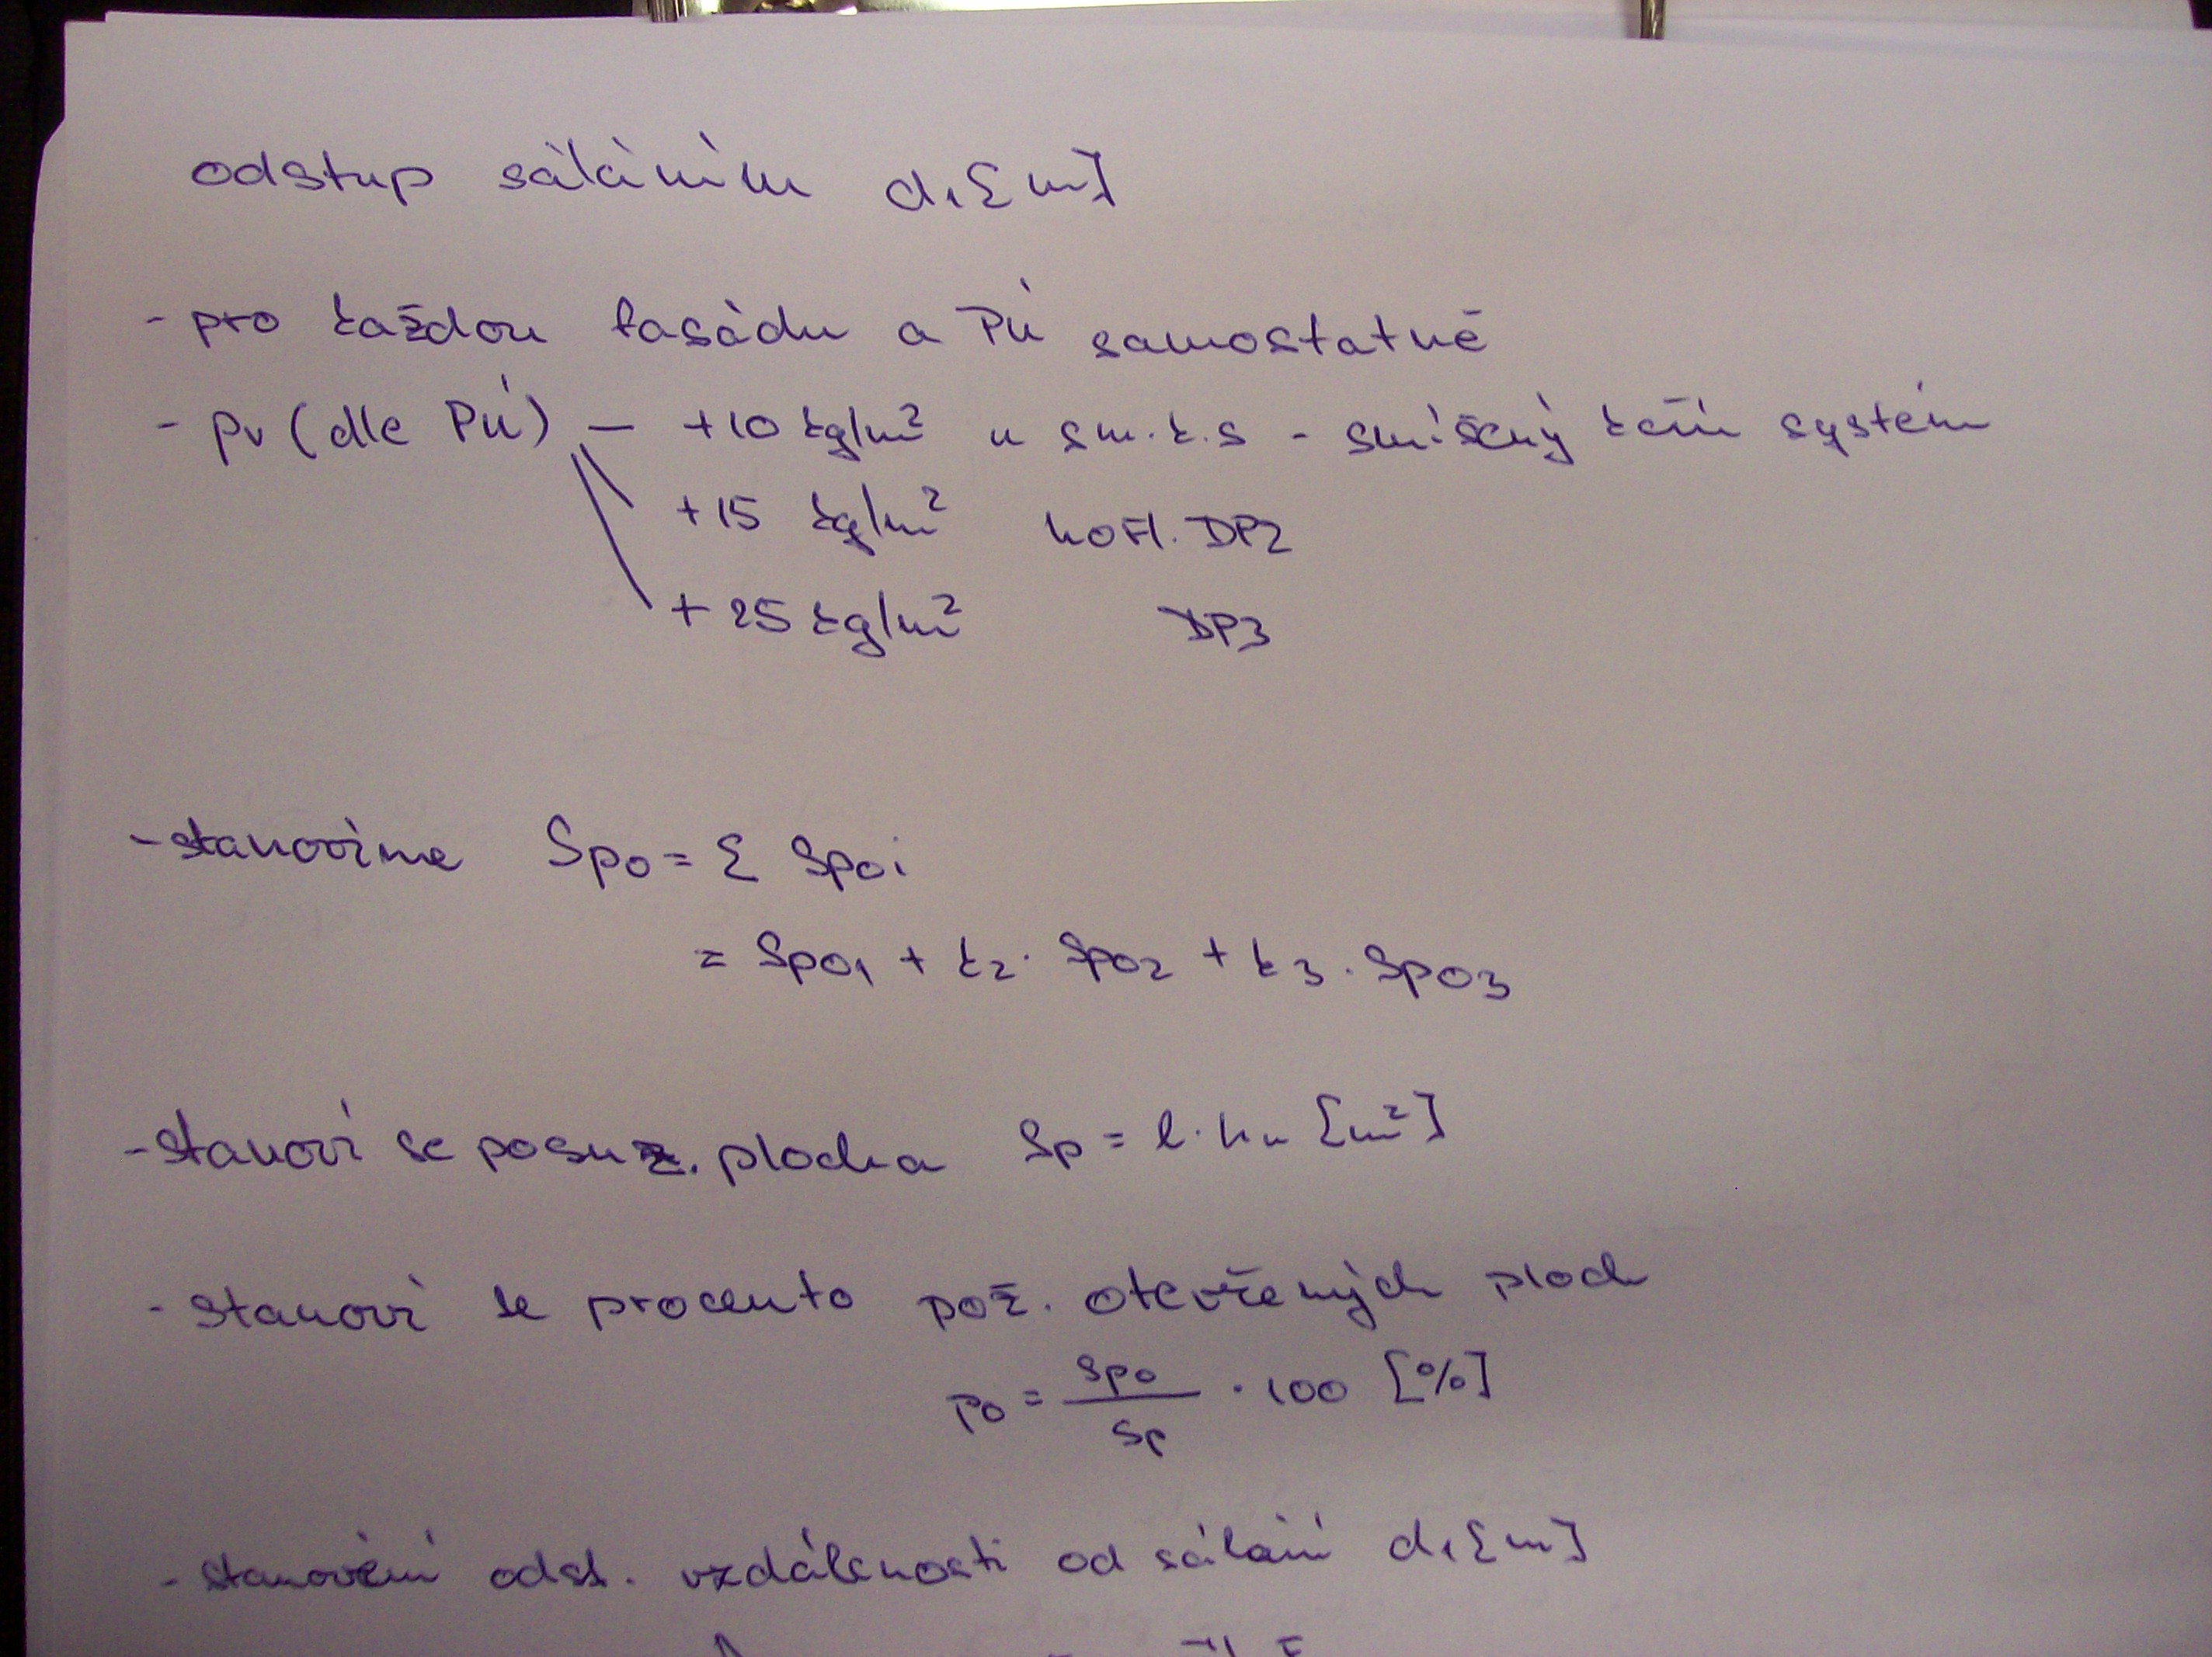 odstup sáláním d₁[m]
- pro každou fasádu a PÚ samostatně
- pv (dle PÚ) — +10 kg/m² u sm.k.s - smíšený kční systém
+15 kg/m² hořl. DP2
+25 kg/m² DP3
- stanovíme Spo = Σ Spoi
= Spo₁ + k₂ · Spo₂ + k₃ · Spo₃
- stanoví se posuz. plocha Sp = l · hu [m²]
- stanoví se procento pož. otevřených ploch
po = Spo / Sp · 100 [%]
- stanovení odst. vzdálenosti od sálání d₁[m]